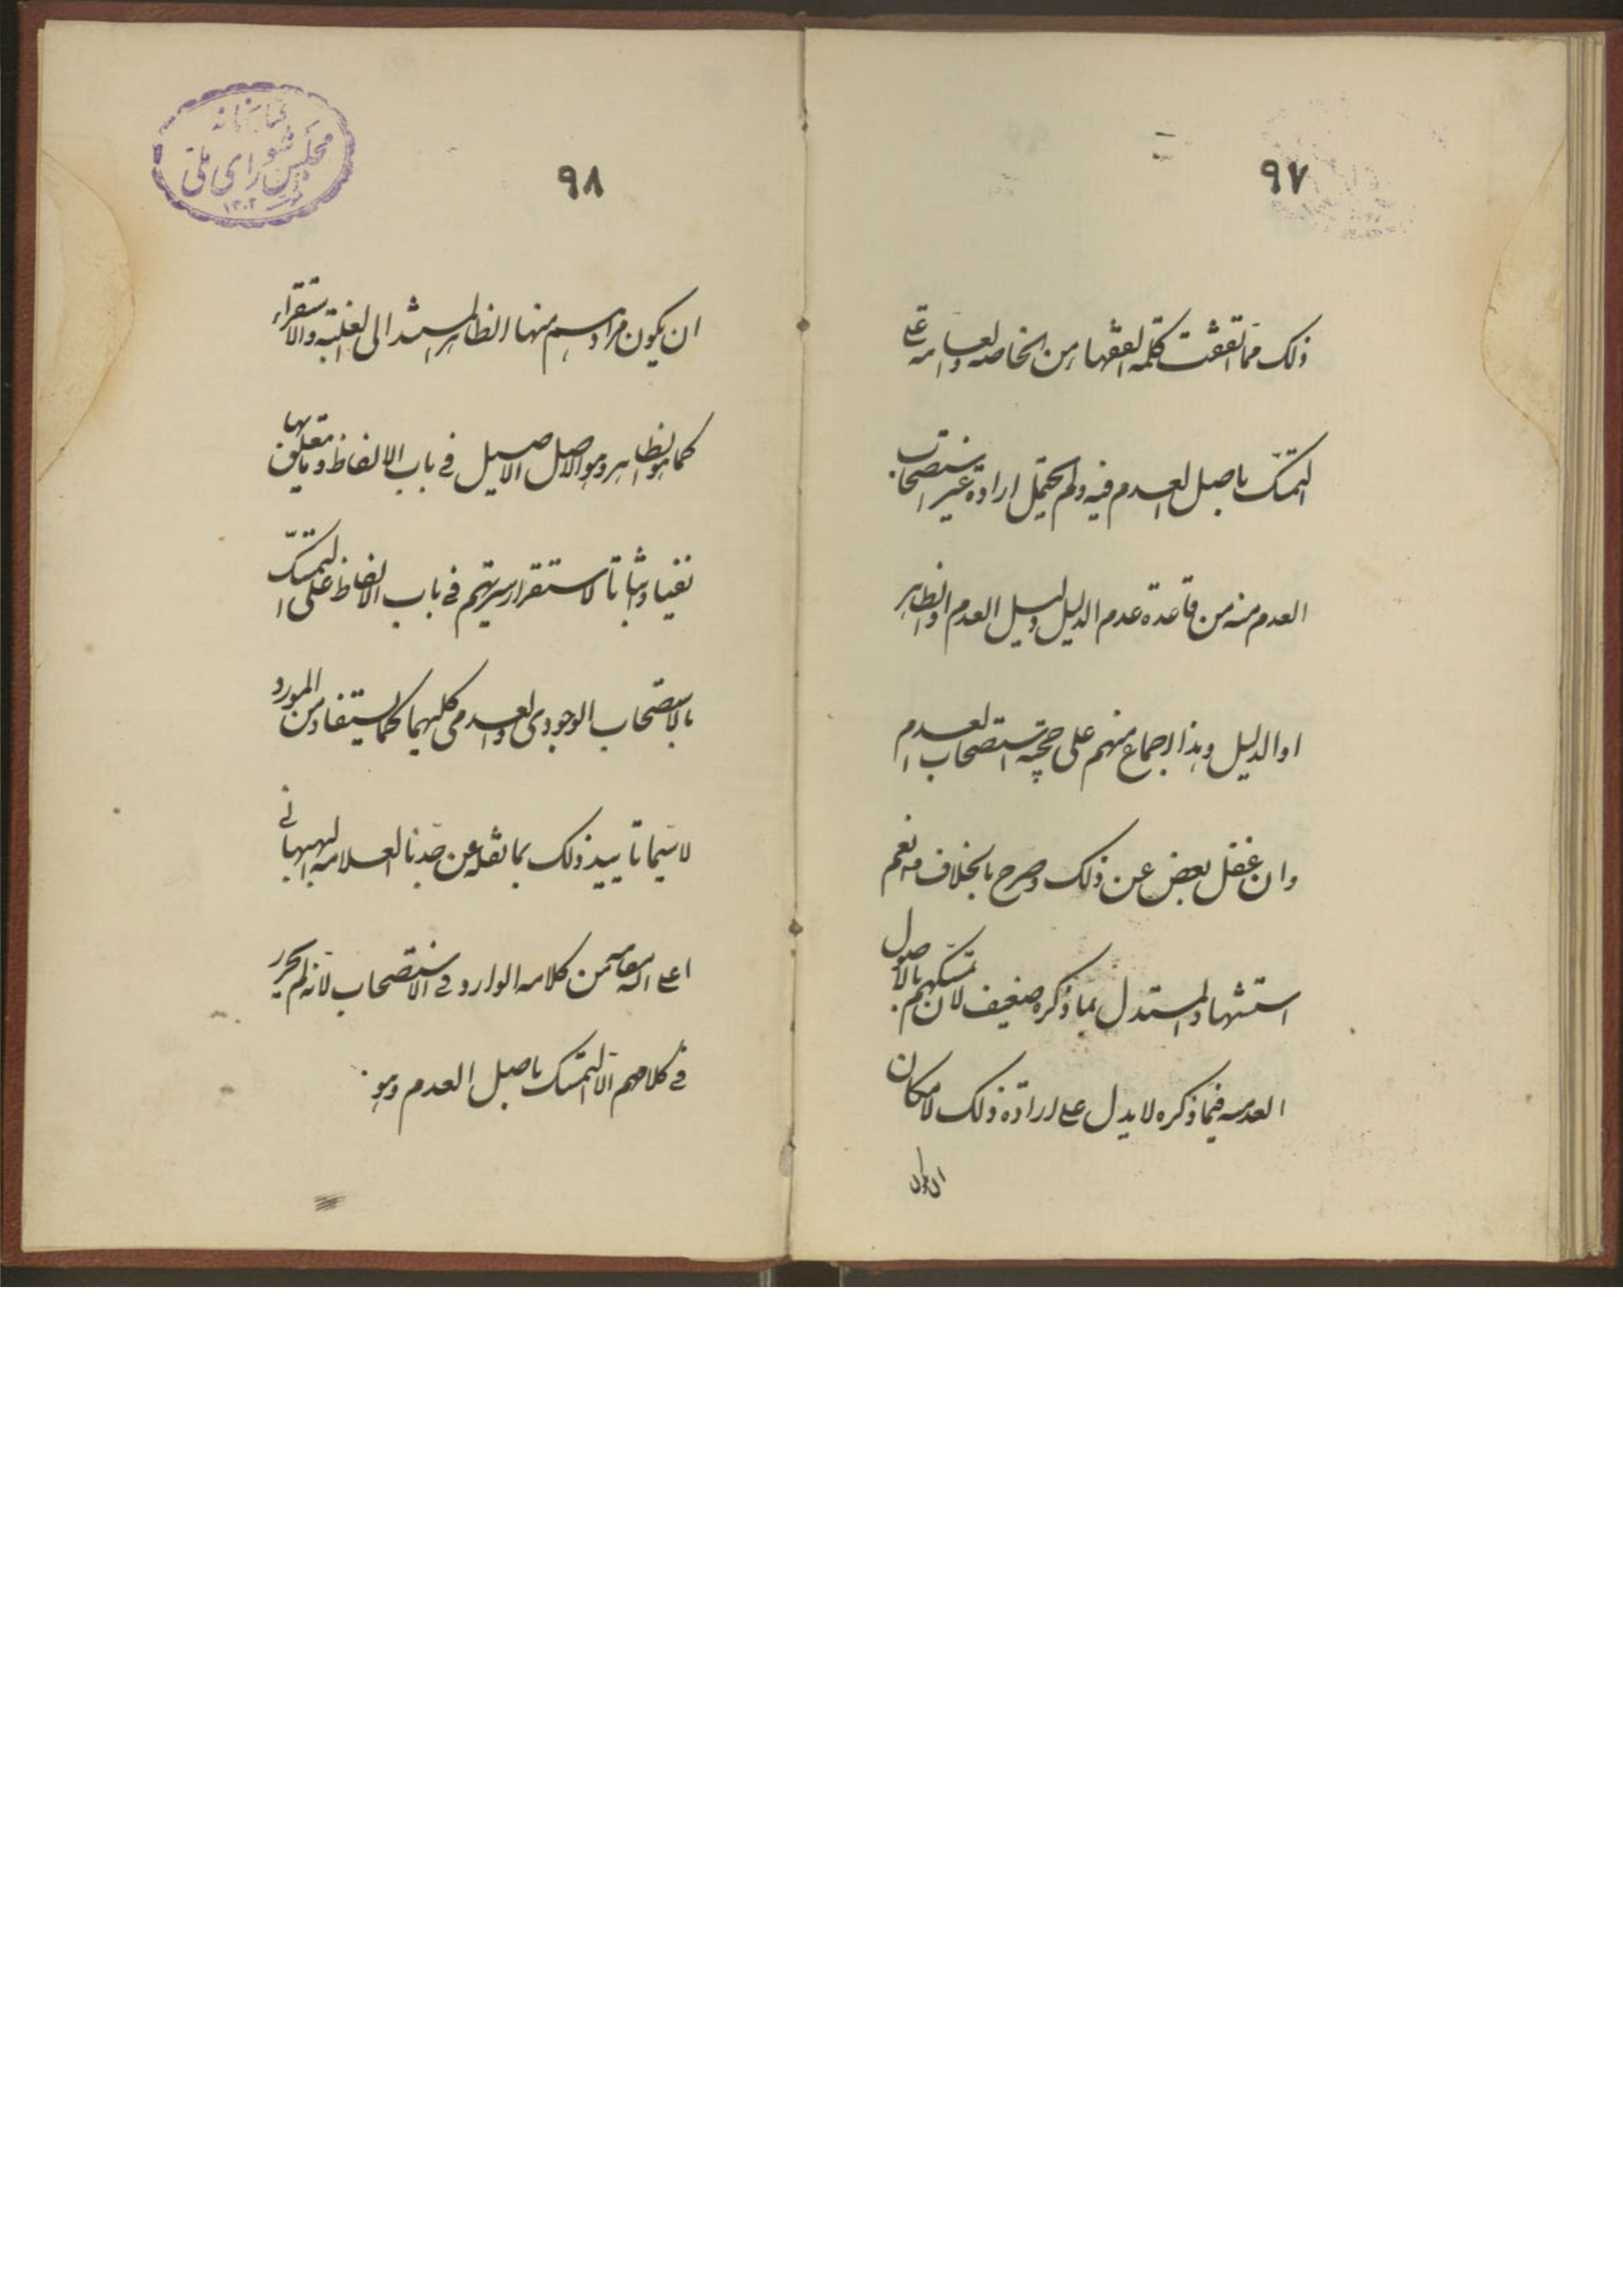 ٩٧
ذلك مما اتفقت كلمة الفقهاء من الخاصه والعامه على
التمسّك باصل العدم فيه ولم يحتمل ارادة غير استصحاب
العدم منه من قاعدة عدم الدليل دليل العدم والظاهر
او الدليل وهذا اجماع منهم على حجية استصحاب العدم
وان غفل بعض عن ذلك وصرح بالخلاف منه نعم
استشهاد المستدل بما ذكره ضعيف لان تمسكهم بالاصول
العدميه فيما ذكره لا يدل على ارادة ذلك لامكان
ان يكون
٩٨
ان يكون مرادهم منها الظاهر المستند الى الغلبة والاستقراء
كما هو الظاهر وهو الاصل الاصيل فى باب الالفاظ وما يتعلق بها
نفيا واثباتا لاستقرار سيرتهم فى باب الالفاظ على التمسّك
بالاستصحاب الوجودى والعدمى كليهما كما يستفاد من المورد
لا سيّما تاييد ذلك بما نقله عن جدنا العلامه البهبهانى
اعلى الله مقامه من كلامه الوارد فى الاستصحاب لانه لم يحرر
فى كلامهم الا التمسّك باصل العدم وهو
كتابخانه
مجلس شوراى ملى
١٣٠٢